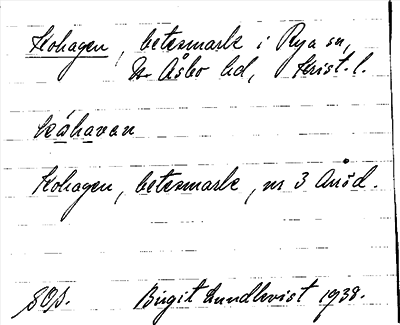 Kohagen, betesmark i Rya sn,
N Åsbo hd, Krist. l.
kåhavan
Kohagen, betesmark, nr 3
SOA. Birgit Lundkvist 1938.